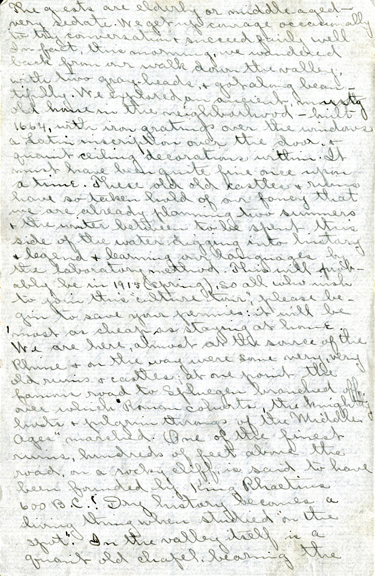 The guests are elderly or middle aged –
very sedate. We get up courage occasionally
to try conversation & succeed fairly well
In fact, this morning, we wended
back from our walk down the valley
with two gray heads, & got along beau-
tifully. We explored an ancient, musty
old house in the neighbourhood – built
1664, with iron gratings over the windows
a Latin inscription over the door &
quaint ceiling decorations within. It
must have been quite fine once upon
a time. These old old castles & ruins
have so taken hold of our fancy that
we are already planning two summers
& the winter between to be spent this
side of the water digging into history
& legend & learning our languages by
the laboratory method. This will prob-
ably be in 1915 (spring), so all who wish
to join this "culture tour", please be-
gin to save your pennies: it will be
most as cheap as staying at home
We are here, almost at the source of the
Rhine & on the way were some very, very
old ruins & castles. At one point the
famous road to Splügen branched off,
over which "Roman cohorts, the Knightly
hosts & pilgrim throngs of the Middle
Ages" marched. One of the finest
ruins, hundreds of feet above the
road, on a rocky cliff is said to have
been founded by King Rhaetius
600 B.C.! Dry history becomes a
living thing when studied "on the
spot". In the valley itself is a
quaint old chapel bearing the